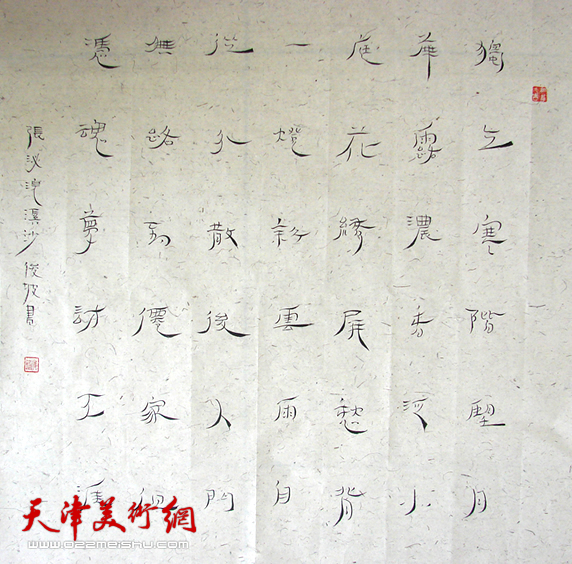 獨立寒階望月
華露濃香泛小
庭花繡屏愁背
一燈斜雲雨自
從分散後人間
無路到僊家但
憑魂夢訪天涯
張泌浣溪沙 俊波書
天津美術網
www.022meishu.com